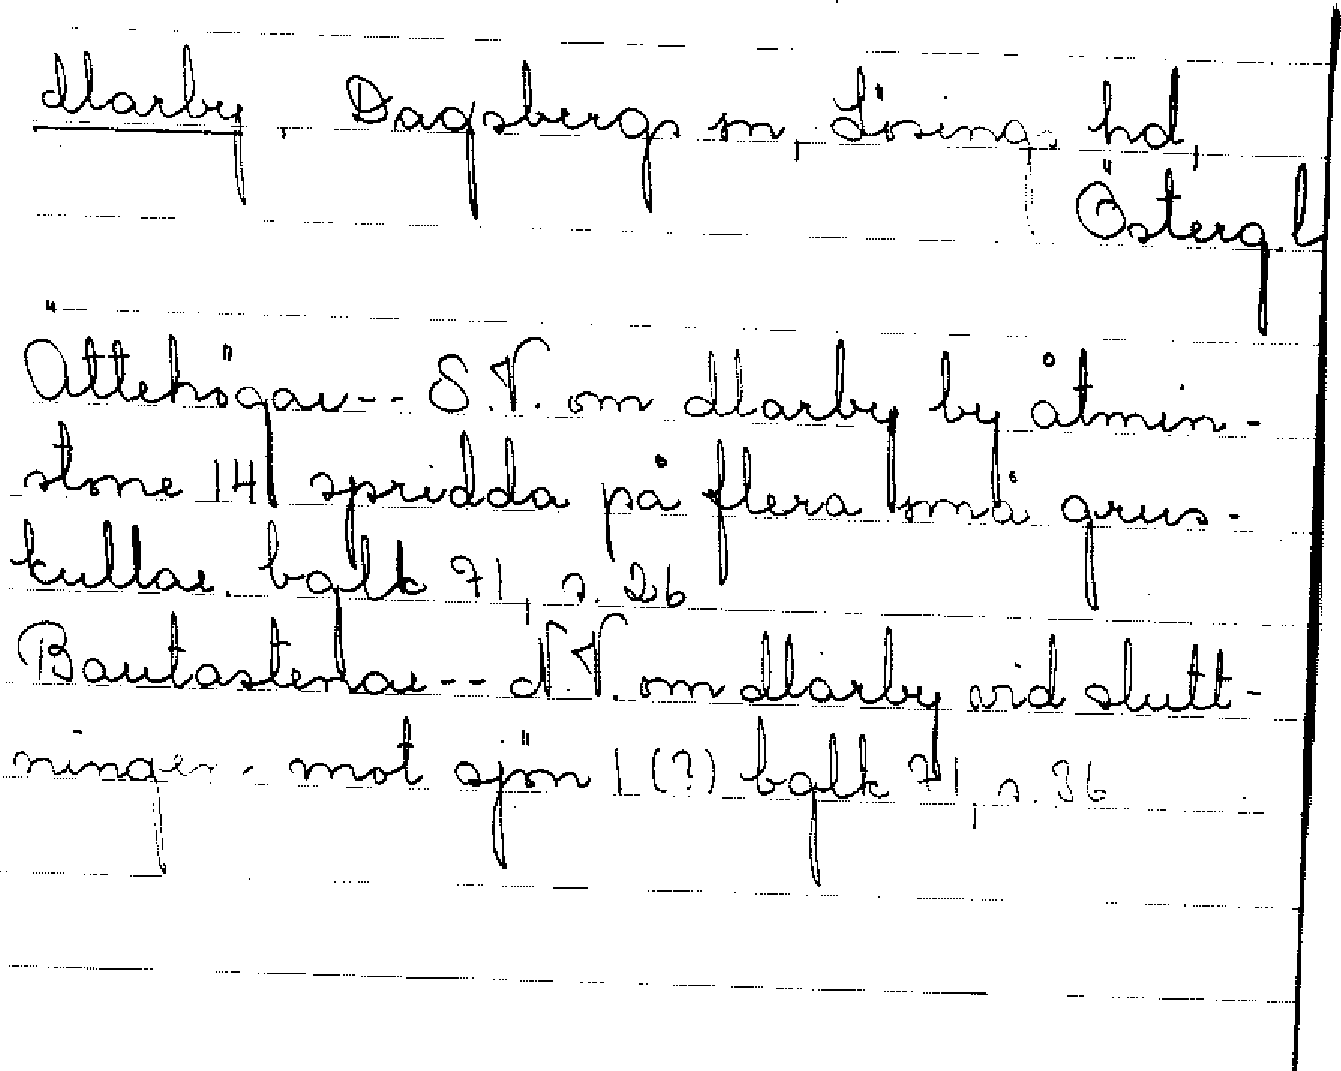 Marby, Dagsbergs sn, Lösings hd,
Österg.l
Ättehögar -- S.V. om Marby by åtmin-
stone 14 spridda på flera små grus-
kullar. balk 71, s. 26
Bautastenar -- N.V. om Marby vid slutt-
ningen mot sjön 1 (?) balk 71, s. 36